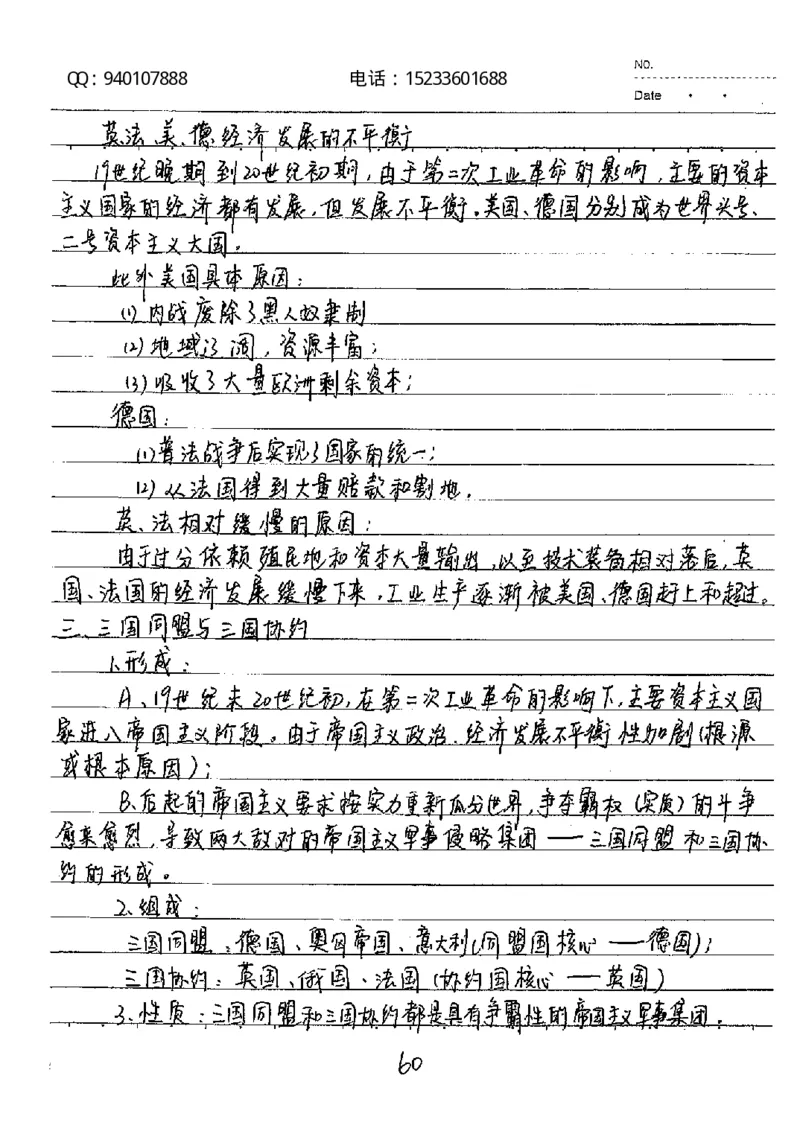 QQ：940107888 电话：15233601688 NO.
Date
英、法、美、德经济发展的不平衡
19世纪晚期到20世纪初期，由于第二次工业革命的影响，主要的资本
主义国家的经济都有发展，但发展不平衡。美国、德国分别成为世界头号、
二号资本主义大国。
此外美国具体原因：
(1)内战废除了黑人奴隶制
(2)地域辽阔，资源丰富；
(3)吸收了大量欧洲剩余资本；
德国：
(1)普法战争后实现了国家的统一；
(2)从法国得到大量赔款和割地。
英、法相对缓慢的原因：
由于过分依赖殖民地和资本大量输出，以至技术装备相对落后，英
国、法国的经济发展缓慢下来，工业生产逐渐被美国、德国赶上和超过。
三、三国同盟与三国协约
1.形成：
A、19世纪末20世纪初，在第二次工业革命的影响下，主要资本主义国
家进入帝国主义阶段。由于帝国主义政治、经济发展不平衡性加剧(根源
或根本原因)；
B、后起的帝国主义要求按实力重新瓜分世界，争夺霸权(实质)的斗争
愈来愈烈，导致两大敌对的帝国主义军事侵略集团——三国同盟和三国协
约的形成。
2.组成：
三国同盟：德国、奥匈帝国、意大利(同盟国核心——德国)；
三国协约：英国、俄国、法国(协约国核心——英国)
3、性质：三国同盟和三国协约都是具有争霸性的帝国主义军事集团。
60